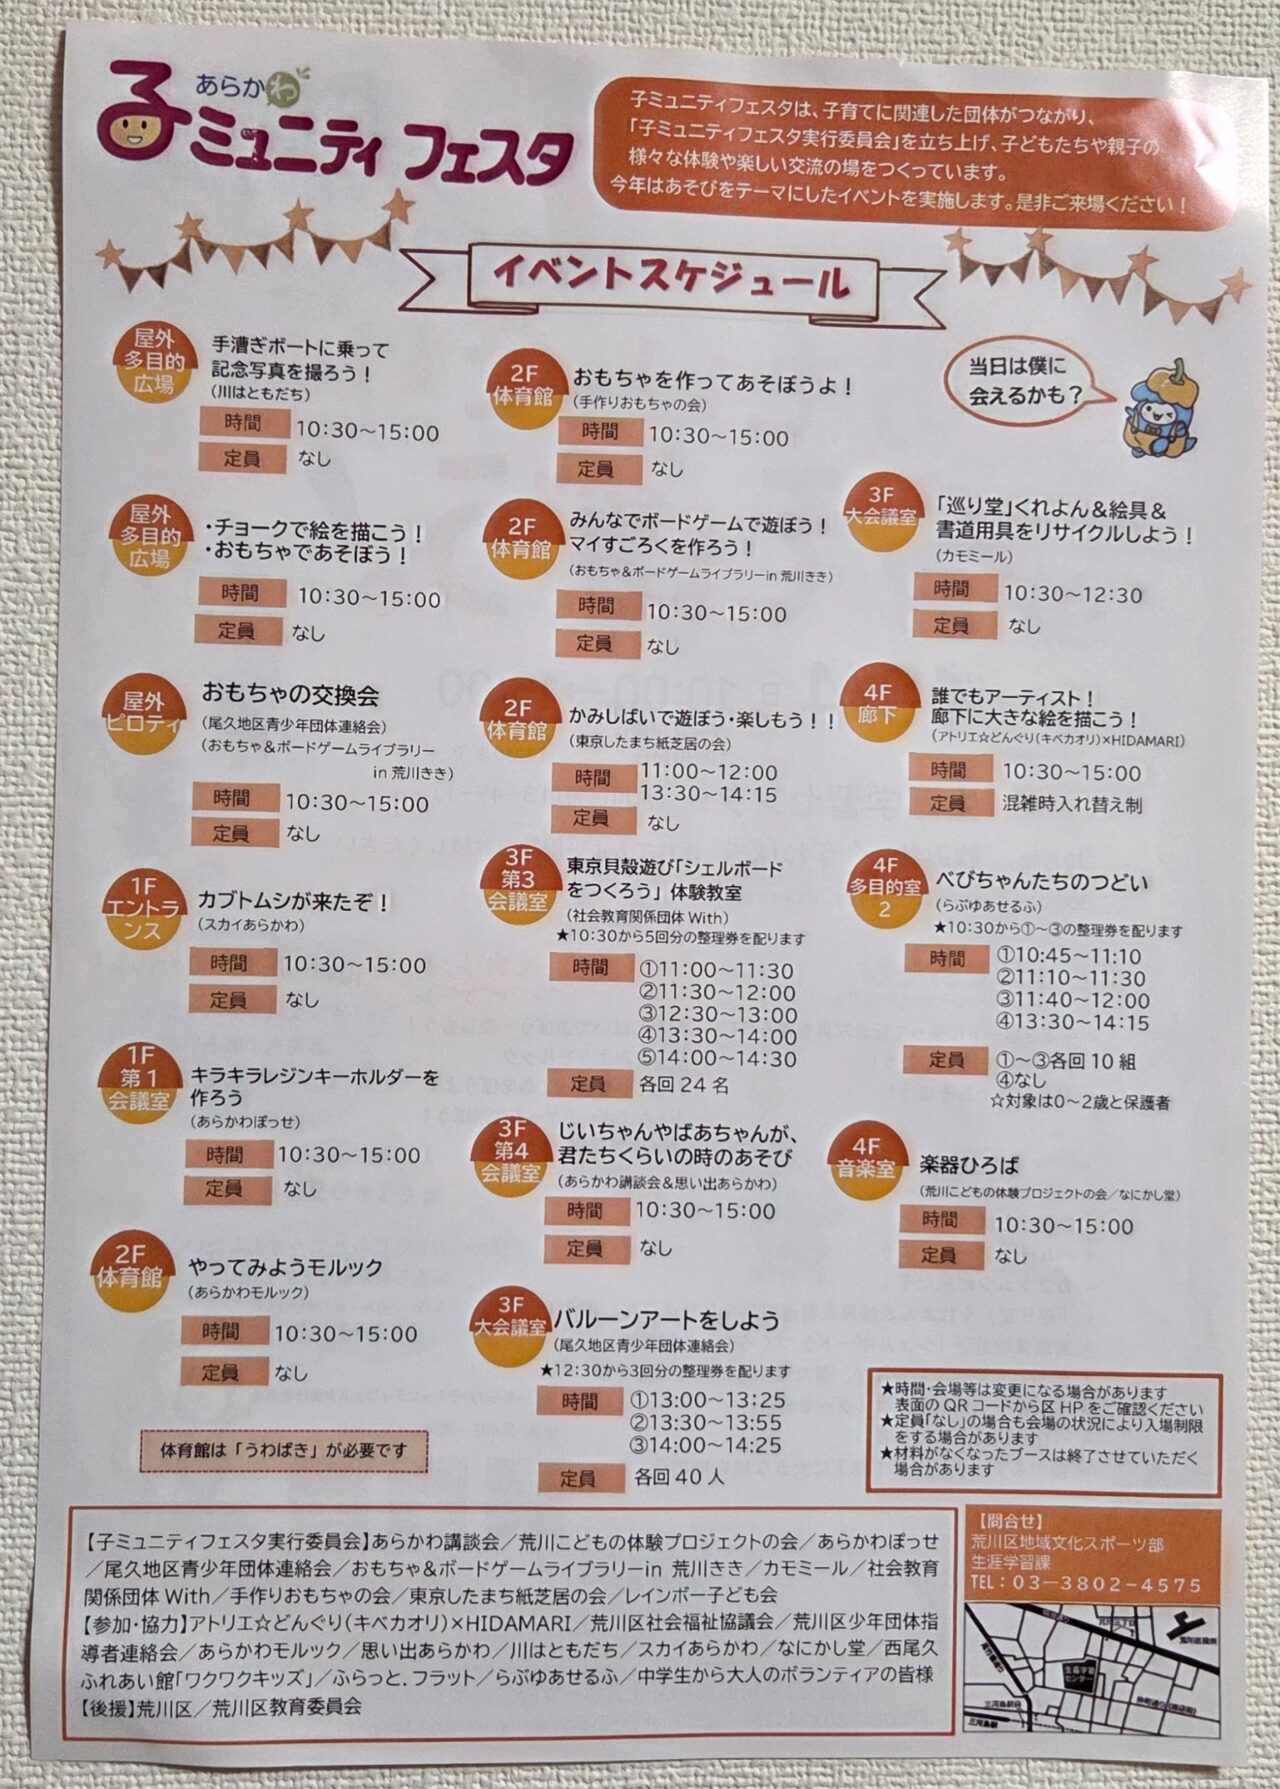 あらかわ
子ミュニティ フェスタ
子ミュニティフェスタは、子育てに関連した団体がつながり、
「子ミュニティフェスタ実行委員会」を立ち上げ、子どもたちや親子の
様々な体験や楽しい交流の場をつくっています。
今年はあそびをテーマにしたイベントを実施します。是非ご来場ください！
イベントスケジュール
屋外
多目的
広場
手漕ぎボートに乗って
記念写真を撮ろう！
（川はともだち）
時間 10：30～15：00
定員 なし
屋外
多目的
広場
・チョークで絵を描こう！
・おもちゃであそぼう！
時間 10：30～15：00
定員 なし
屋外
ピロティ
おもちゃの交換会
（尾久地区青少年団体連絡会）
（おもちゃ＆ボードゲームライブラリー
in 荒川きき）
時間 10：30～15：00
定員 なし
1F
エントラ
ンス
カブトムシが来たぞ！
（スカイあらかわ）
時間 10：30～15：00
定員 なし
1F
第1
会議室
キラキラレジンキーホルダーを
作ろう
（あらかわぽっせ）
時間 10：30～15：00
定員 なし
2F
体育館
やってみようモルック
（あらかわモルック）
時間 10：30～15：00
定員 なし
体育館は「うわばき」が必要です
2F
体育館
おもちゃを作ってあそぼうよ！
（手作りおもちゃの会）
時間 10：30～15：00
定員 なし
2F
体育館
みんなでボードゲームで遊ぼう！
マイすごろくを作ろう！
（おもちゃ＆ボードゲームライブラリーin 荒川きき）
時間 10：30～15：00
定員 なし
2F
体育館
かみしばいで遊ぼう・楽しもう！！
（東京したまち紙芝居の会）
時間 11：00～12：00
13：30～14：15
定員 なし
3F
第3
会議室
東京貝殻遊び「シェルボード
をつくろう」 体験教室
（社会教育関係団体 With）
★10：30から5回分の整理券を配ります
時間 ①11：00～11：30
②11：30～12：00
③12：30～13：00
④13：30～14：00
⑤14：00～14：30
定員 各回 24 名
3F
第4
会議室
じいちゃんやばあちゃんが、
君たちくらいの時のあそび
（あらかわ講談会＆思い出あらかわ）
時間 10：30～15：00
定員 なし
3F
大会議室
バルーンアートをしよう
（尾久地区青少年団体連絡会）
★12：30から3回分の整理券を配ります
時間 ①13：00～13：25
②13：30～13：55
③14：00～14：25
定員 各回 40 人
当日は僕に
会えるかも？
3F
大会議室
「巡り堂」くれよん＆絵具＆
書道用具をリサイクルしよう！
（カモミール）
時間 10：30～12：30
定員 なし
4F
廊下
誰でもアーティスト！
廊下に大きな絵を描こう！
（アトリエ☆どんぐり（キベカオリ）×HIDAMARI）
時間 10：30～15：00
定員 混雑時入れ替え制
4F
多目的室
2
べびちゃんたちのつどい
（らぶゆあせるふ）
★10：30から①～③の整理券を配ります
時間 ①10：45～11：10
②11：10～11：30
③11：40～12：00
④13：30～14：15
定員 ①～③各回 10 組
④なし
☆対象は0～2歳と保護者
4F
音楽室
楽器ひろば
（荒川こどもの体験プロジェクトの会／なにかし堂）
時間 10：30～15：00
定員 なし
★時間・会場等は変更になる場合があります
表面の QR コードから区 HP をご確認ください
★定員「なし」の場合も会場の状況により入場制限
をする場合があります
★材料がなくなったブースは終了させていただく
場合があります
【子ミュニティフェスタ実行委員会】あらかわ講談会／荒川こどもの体験プロジェクトの会／あらかわぽっせ
／尾久地区青少年団体連絡会／おもちゃ＆ボードゲームライブラリーin 荒川きき／カモミール／社会教育
関係団体 With／手作りおもちゃの会／東京したまち紙芝居の会／レインボー子ども会
【参加・協力】アトリエ☆どんぐり（キベカオリ）×HIDAMARI／荒川区社会福祉協議会／荒川区少年団体指
導者連絡会／あらかわモルック／思い出あらかわ／川はともだち／スカイあらかわ／なにかし堂／西尾久
ふれあい館「ワクワクキッズ」／ふらっと．フラット／らぶゆあせるふ／中学生から大人のボランティアの皆様
【後援】荒川区／荒川区教育委員会
【問合せ】
荒川区地域文化スポーツ部
生涯学習課
TEL：03－3802－4575
生涯学習
センター
荒川区役所
三河島駅